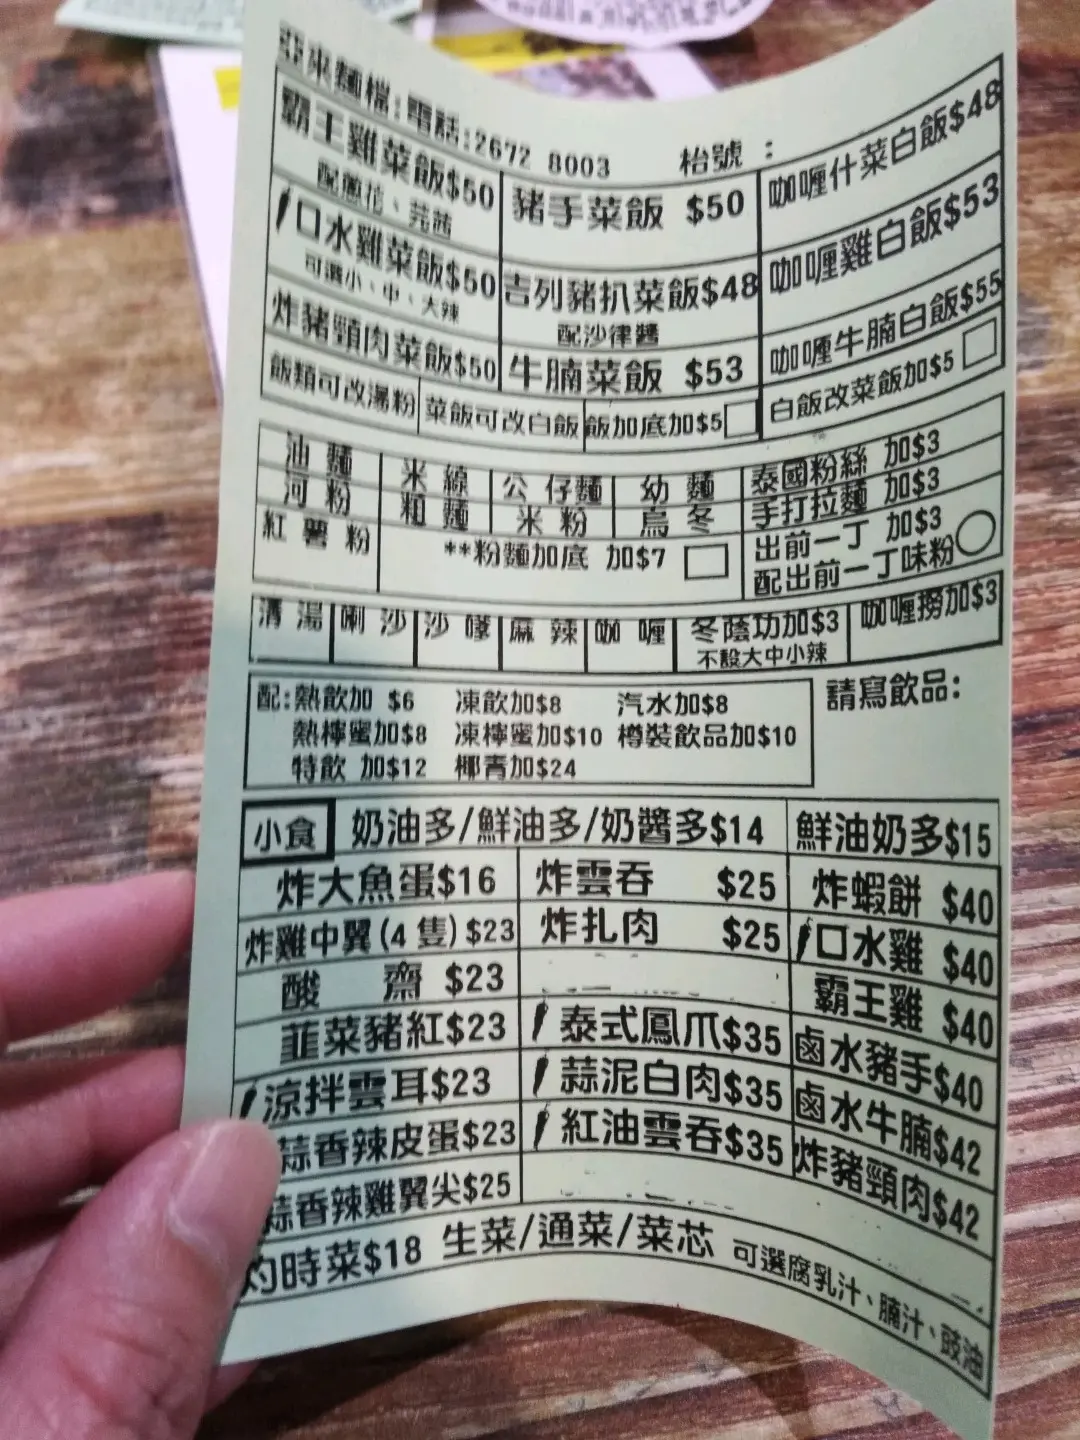 亞來麵檔:電話:2672 8003 枱號:
霸王雞菜飯$50
配蔥花、芫茜
豬手菜飯 $50
咖喱什菜白飯$48
口水雞菜飯$50
可選小、中、大辣
吉列豬扒菜飯$48
配沙律醬
咖喱雞白飯$53
炸豬頸肉菜飯$50
牛腩菜飯 $53
咖喱牛腩白飯$55
飯類可改湯粉
菜飯可改白飯
飯加底加$5
白飯改菜飯加$5
油麵 米線 公仔麵 幼麵 泰國粉絲 加$3
河粉 粗麵 米粉 烏冬 手打拉麵 加$3
紅薯粉
**粉麵加底 加$7
出前一丁 加$3
配出前一丁味粉
清湯 喇沙 沙嗲 麻辣 咖喱
冬蔭功加$3
不設大中小辣
咖喱撈加$3
配:熱飲加 $6 凍飲加$8 汽水加$8
熱檸蜜加$8 凍檸蜜加$10 樽裝飲品加$10
特飲 加$12 椰青加$24
請寫飲品:
小食 奶油多/鮮油多/奶醬多$14 鮮油奶多$15
炸大魚蛋$16 炸雲吞 $25 炸蝦餅 $40
炸雞中翼(4 隻)$23 炸扎肉 $25 口水雞 $40
酸齋 $23 霸王雞 $40
韮菜豬紅$23 泰式鳳爪$35 鹵水豬手$40
涼拌雲耳$23 蒜泥白肉$35 鹵水牛腩$42
蒜香辣皮蛋$23 紅油雲吞$35 炸豬頸肉$42
蒜香辣雞翼尖$25
灼時菜$18 生菜/通菜/菜芯 可選腐乳汁、腩汁、豉油